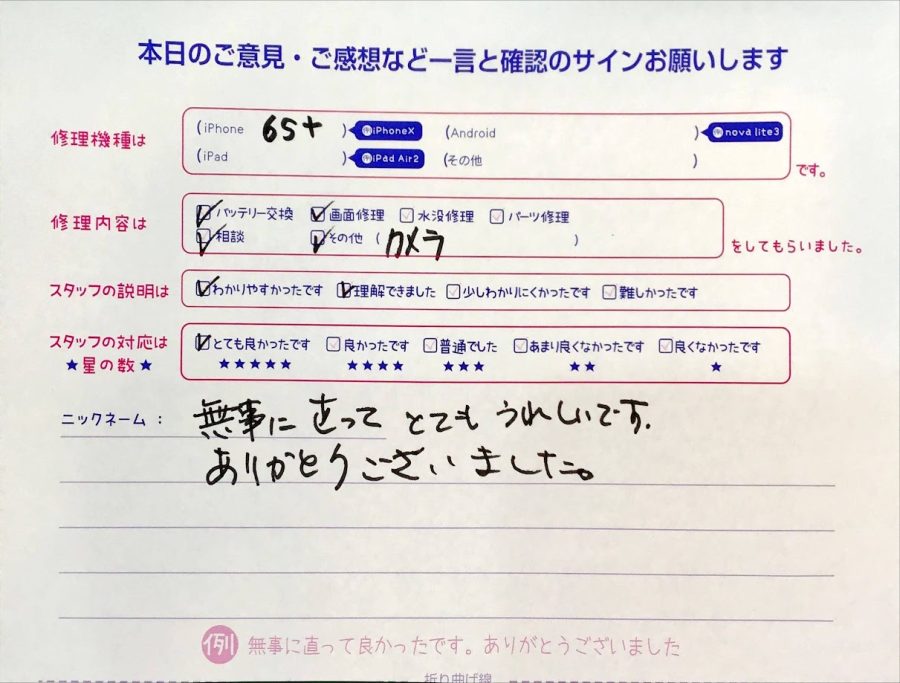 本日のご意見・ご感想など一言と確認のサインお願いします
修理機種は (iPhone 6S+ ) 例iPhoneX (Android ) 例nova lite3
(iPad ) 例iPad Air2 (その他 ) です。
修理内容は バッテリー交換 画面修理 水没修理 パーツ修理
相談 その他 ( カメラ ) をしてもらいました。
スタッフの説明は わかりやすかったです 理解できました 少しわかりにくかったです 難しかったです
スタッフの対応は とても良かったです 良かったです 普通でした あまり良くなかったです 良くなかったです
★星の数★ ★★★★★ ★★★★ ★★★ ★★ ★
ニックネーム : 無事に直って とても うれしいです.
ありがとうございました。
例 無事に直って良かったです。ありがとうございました
折り曲げ線